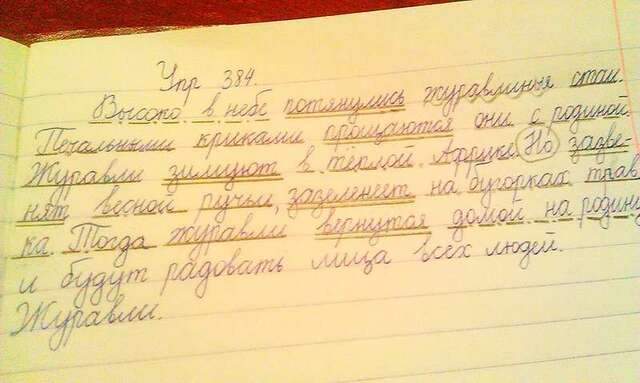 Упр 384.
Высоко в небе потянулись журавлиные стаи.
Печальными криками прощаются они с родиной.
Журавли зимуют в тёплой Африке. Но зазве-
нят весной ручьи, зазеленеет на бугорках трав
ка. Тогда журавли вернутся домой на родину
и будут радовать лица всех людей.
Журавли.